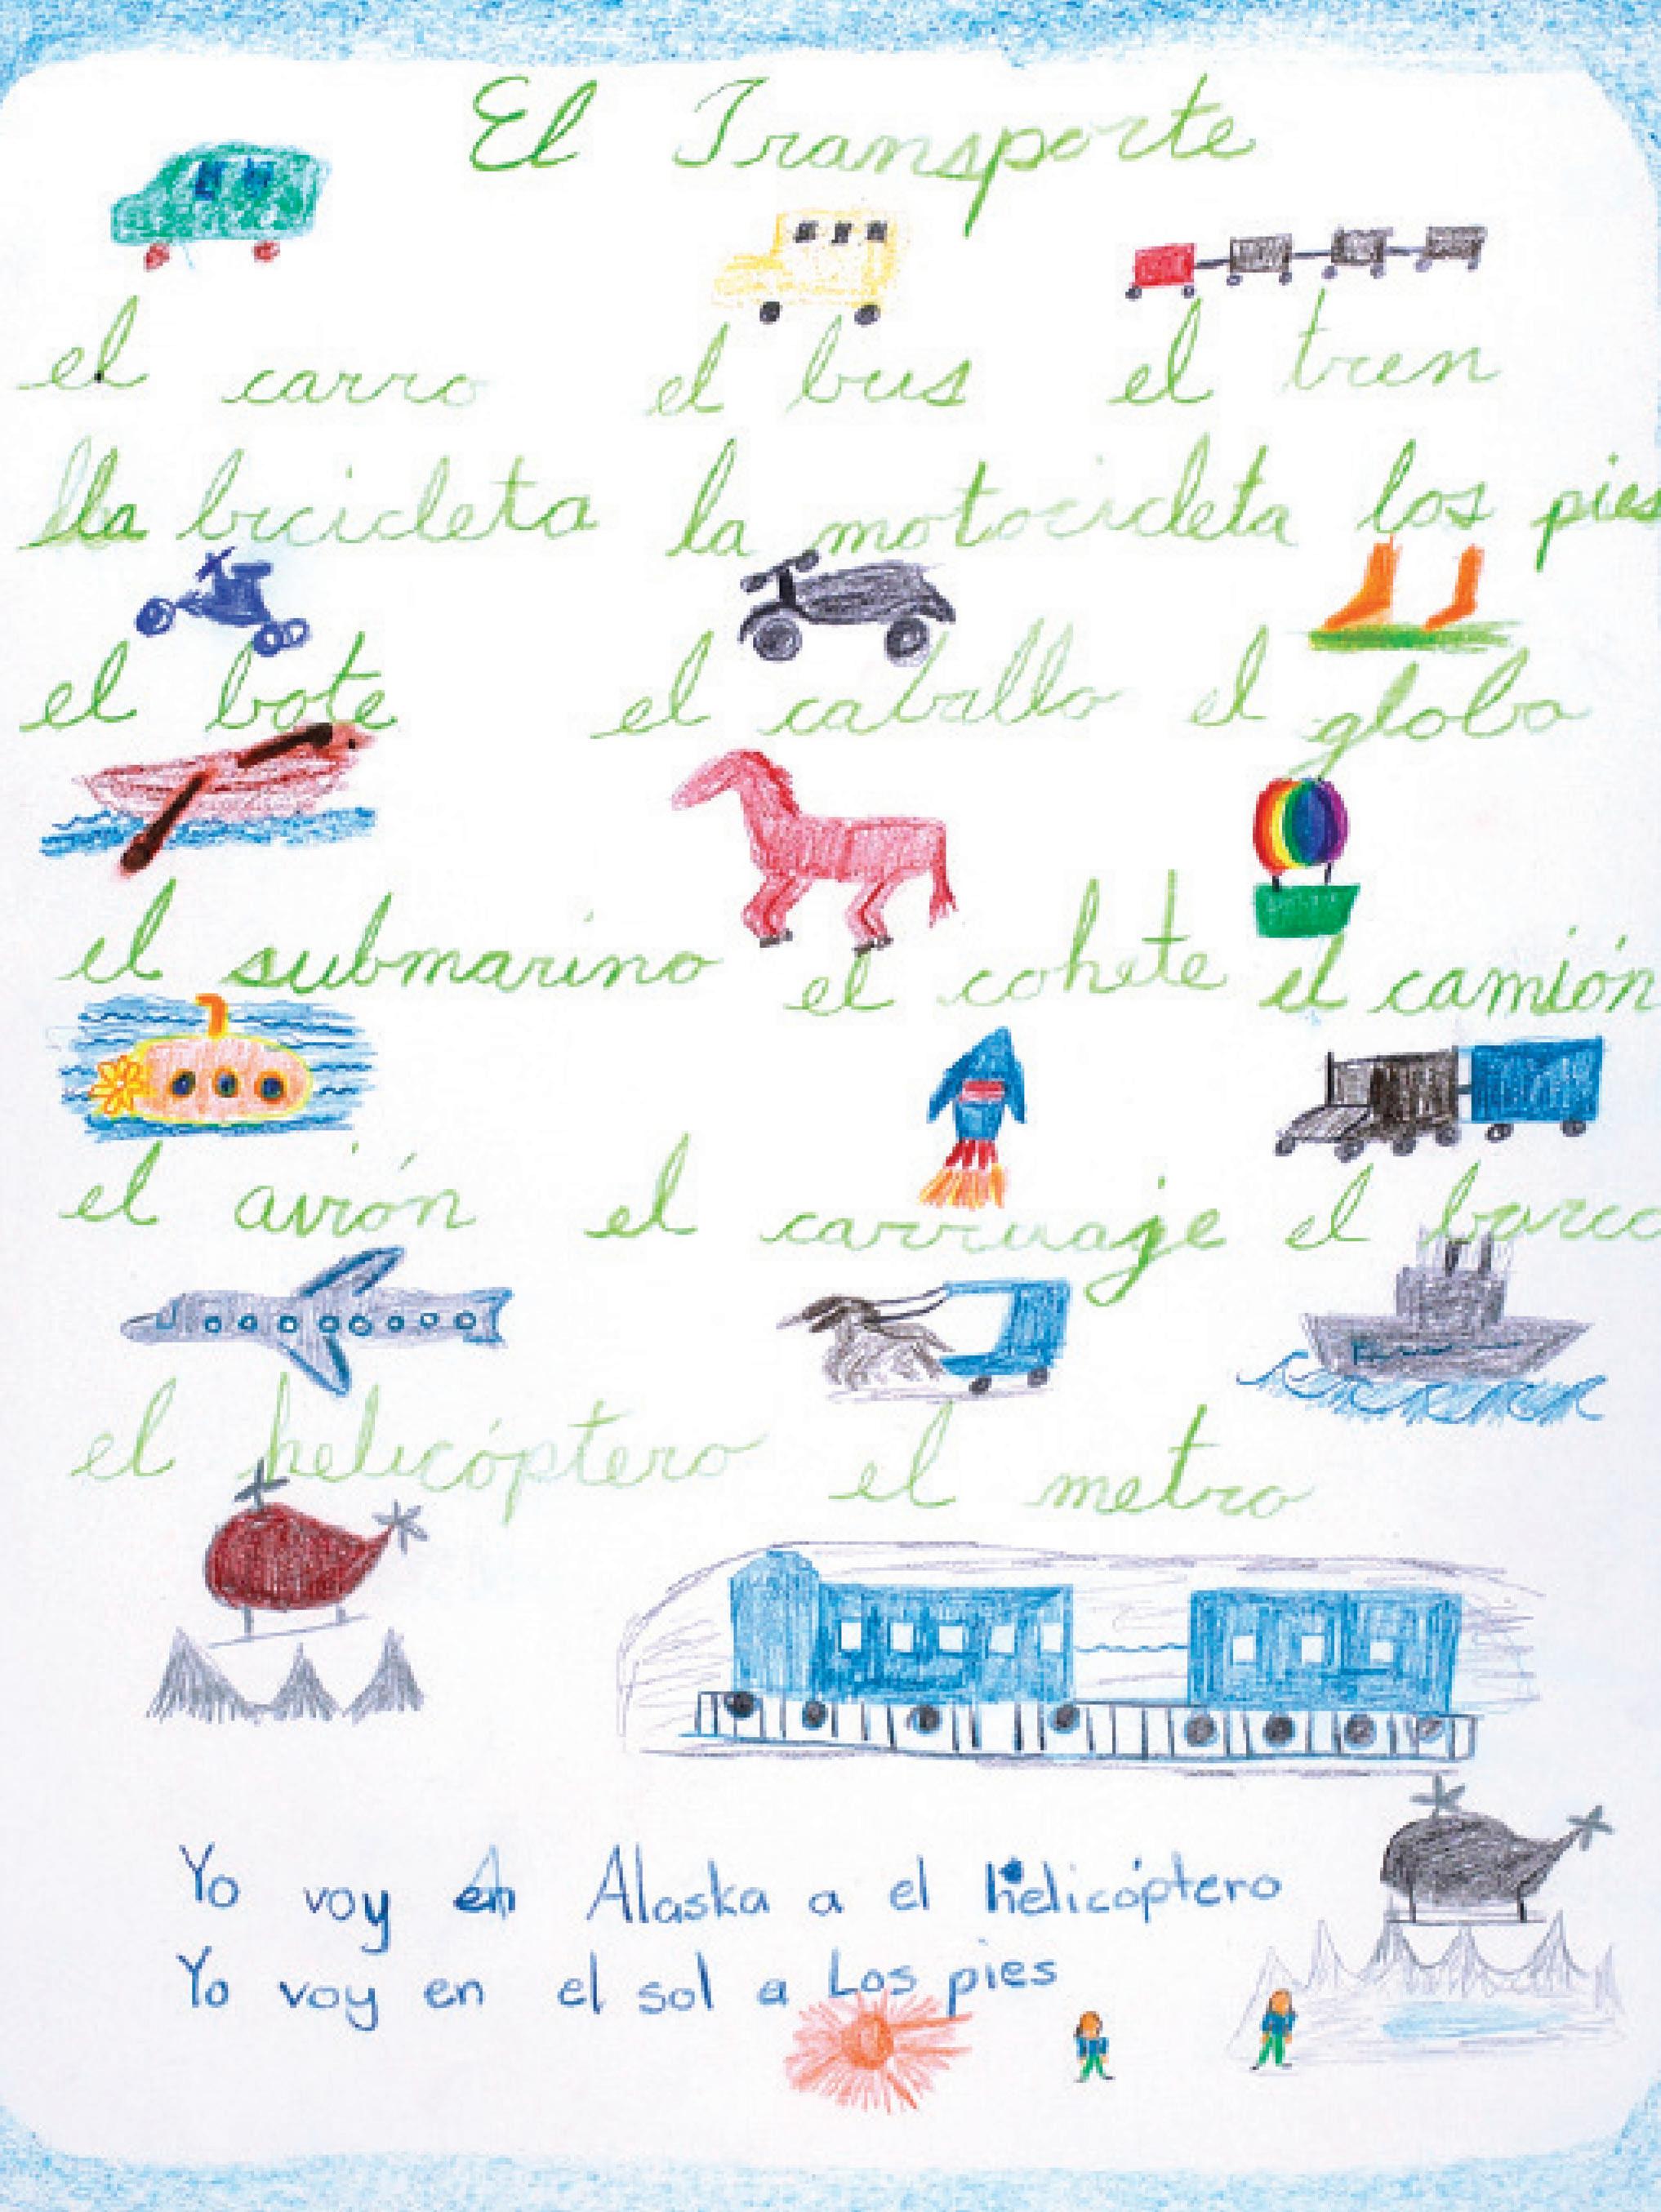 El Transporte
el carro el bus el tren
la bicicleta la motocicleta los pies
el bote el caballo el globo
el submarino el cohete el camión
el avión el carruaje el barco
el helicóptero el metro
Yo voy en Alaska a el helicóptero
Yo voy en el sol a Los pies